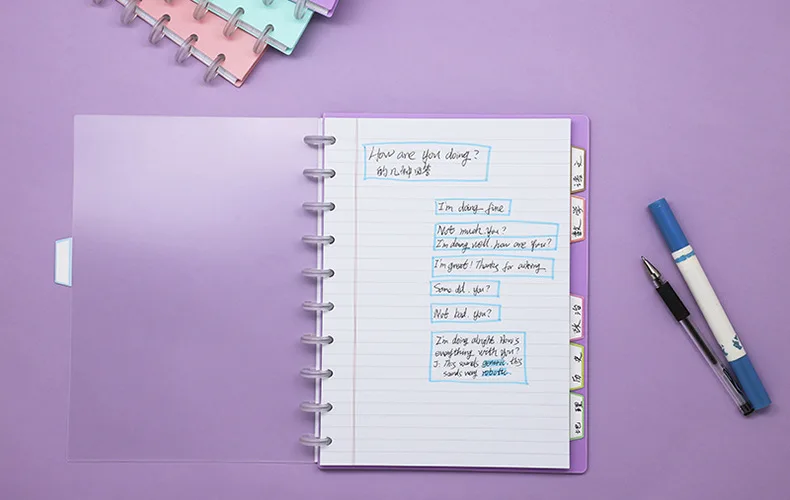 How are you doing?
的几种回答
I'm doing fine
Not much. you?
I'm doing well. how are you?
I'm great! Thanks for asking
Same old. you?
Not bad. you?
I'm doing alright How's
everything with you?
J. This sounds generic. this
sounds very robotic.
语文
数学
政治
历史
地理